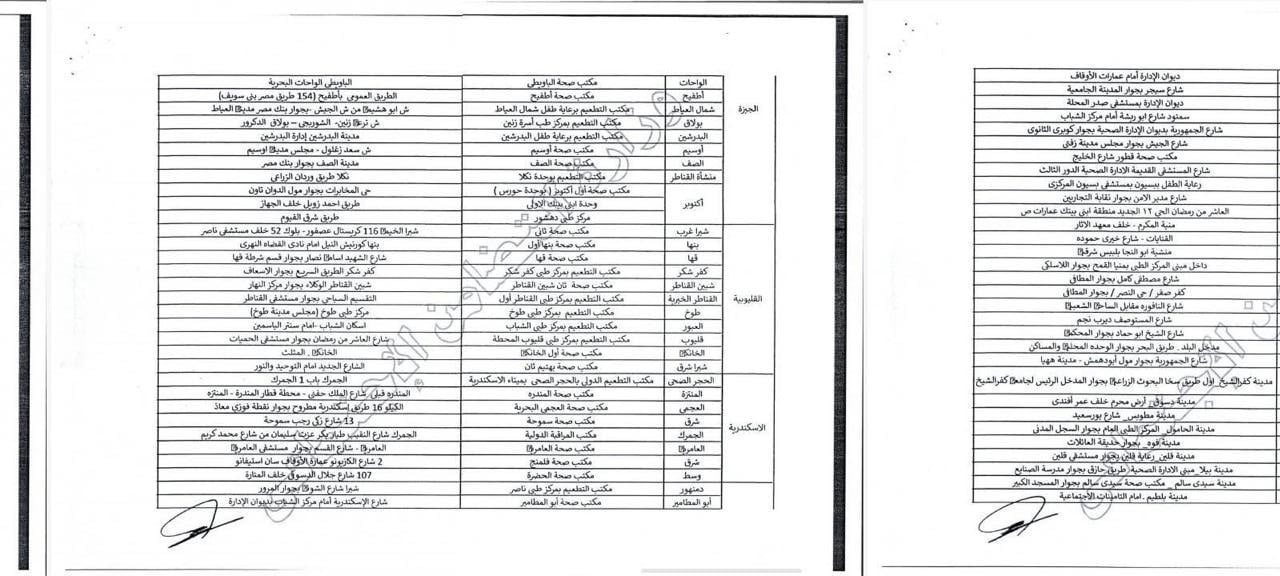 الواحات مكتب صحة الباويطى الباويطى الواحات البحرية
أطفيح مكتب صحة أطفيح الطريق العمومى بأطفيح (154 طريق مصر بنى سويف)
الجيزة شمال العياط مكتب التطعيم برعاية طفل شمال العياط ش ابو هشيم� من ش الجيش -بجوار بنك مصر مدين� العياط
بولاق مكتب التطعيم بمركز طب أسرة زنين ش ترع� زنين- الشوربجى – بولاق الدكرور
البدرشين مكتب التطعيم برعاية طفل البدرشين مدينة البدرشين إدارة البدرشين
أوسيم مكتب صحة أوسيم ش سعد زغلول - مجلس مدين� اوسيم
الصف مكتب صحة الصف مدينة الصف بجوار بنك مصر
منشأة القناطر مكتب التطعيم بوحدة نكلا نكلا طريق وردان الزراعى
أكتوبر مكتب صحة أول أكتوبر ( بوحدة حورس ) حى المخابرات بجوار مول الدوان تاون
وحدة ابنى بيتك الاولى طريق احمد زويل خلف الجهاز
مركز طبى دهشور طريق شرق الفيوم
القليوبية شبرا غرب مكتب صحة ثانى شبرا الخيم� 116 كريستال عصفور- بلوك 52 خلف مستشفى ناصر
بنها مكتب صحة بنها أول بنها كورنيش النيل امام نادى القضاه النهرى
قها مكتب صحة قها شارع الشهيد اسام� نصار بجوار قسم شرطة قها
كفر شكر مكتب التطعيم بمركز طبى كفر شكر كفر شكر الطريق السريع بجوار الاسعاف
شبين القناطر مكتب صحة ثان شبين القناطر شبين القناطر الوكلاء بجوار مركز النهار
القناطر الخيرية مكتب التطعيم بمركز طبى القناطر أول التقسيم السياحى بجوار مستشفى القناطر
طوخ مكتب التطعيم بمركز طبى طوخ مركز طبى طوخ (مجلس مدينة طوخ)
العبور مكتب التطعيم بمركز طبى الشباب اسكان الشباب -امام سنتر الياسمين
قليوب مكتب التطعيم بمركز طبى قليوب المحطة شارع العاشر من رمضان بجوار مستشفى الحميات
الخانك� مكتب صحة أول الخانك� الخانك� . المثلث
شبرا شرق مكتب صحة بهتيم ثان الشارع الجديد امام التوحيد والنور
الاسكندرية الحجر الصحى مكتب التطعيم الدولى بالحجر الصحى بميناء الاسكندرية الجمرك باب 1 الجمرك
المنتزة مكتب صحة المندره المندره قبلى شارع الملك حفنى - محطة قطار المندرة - المنتزه
العجمى مكتب صحة العجمى البحرية الكيلو 16 طريق إسكندرية مطروح بجوار نقطة فوزي معاذ
شرق مكتب صحة سموحة 13 شارع زكى رجب سموحة
الجمرك مكتب المراقبة الدولية الجمرك شارع النقيب طيار بكر عزت سليمان من شارع محمد كريم
العامري� مكتب صحة العامري� العامري� - شارع القسم بجوار مستشفى العامري�
شرق مكتب صحة فلمنج 2 شارع الكازينو عمارة الأوقاف سان استيفانو
وسط مكتب صحة الحضرة 107 شارع جلال الدسوقى خلف المنارة
دمنهور مكتب التطعيم بمركز طبى ناصر شبرا شارع الشون� بجوار المرور
أبو المطامير مكتب صحة أبو المطامير شارع الإسكندرية أمام مركز الشباب بديوان الإدارة
ديوان الإدارة أمام عمارات الأوقاف
شارع سيجر بجوار المدينة الجامعية
ديوان الإدارة بمستشفى صدر المحلة
سمنود شارع ابو ريشة أمام مركز الشباب
شارع الجمهورية بديوان الإدارة الصحية بجوار كوبرى الثانوى
شارع الجيش بجوار مجلس مدينة زفتى
مكتب صحة قطور شارع الخليج
شارع المستشفى القديمة الادارة الصحية الدور الثالث
رعاية الطفل ببسيون بمستشفى بسيون المركزى
شارع مدير الامن بجوار نقابة التجاريين
العاشر من رمضان الحى ١٢ الجديد منطقة ابنى بيتك عمارات ص
منية المكرم - خلف معهد الاثار
القنايات - شارع خيرى حموده
منشية ابو النجا بلبيس شرقي�
داخل مبنى المركز الطبى بمنيا القمح بجوار اللاسلكى
شارع مصطفى كامل بجوار المطافى
كفر صقر / حي النصر / بجوار المطافى
شارع النافوره مقابل الساح� الشعبي�
شارع المستوصف ديرب نجم
شارع الشيخ ابو حماد بجوار المحكم�
مدخل البلد . طريق البحر بجوار الوحده المحلي� والمساكن
شارع الجمهورية بجوار مول أبودهمش - مدينة ههيا
مدينة كفرالشيخ_ اول طريق سخا البحوث الزراعي� بجوار المدخل الرئيس لجامع� كفرالشيخ
مدينة دسوق_ أرض محرم خلف عمر أفندى
مدينة مطوبس_ شارع بورسعيد
مدينة الحامول_ المركز الطبى العام بجوار السجل المدنى
مدينة فوه_ بجوار حديقة العائلات
مدينة قلين_ رعاية قلين بجوار مستشفى قلين
مدينة بيلا_ مبنى الادارة الصحية (طريق حازق بجوار مدرسة الصنايع
مدينة سيدى سالم _ مكتب صحة سيدى سالم بجوار المسجد الكبير
مدينة بلطيم . امام التامينات الأجتماعية